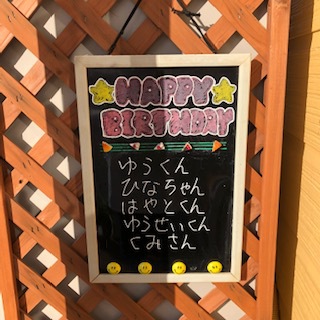 HAPPY
BIRTHDAY
ゆうくん
ひなちゃん
はやとくん
ゆうせいくん
くみさん